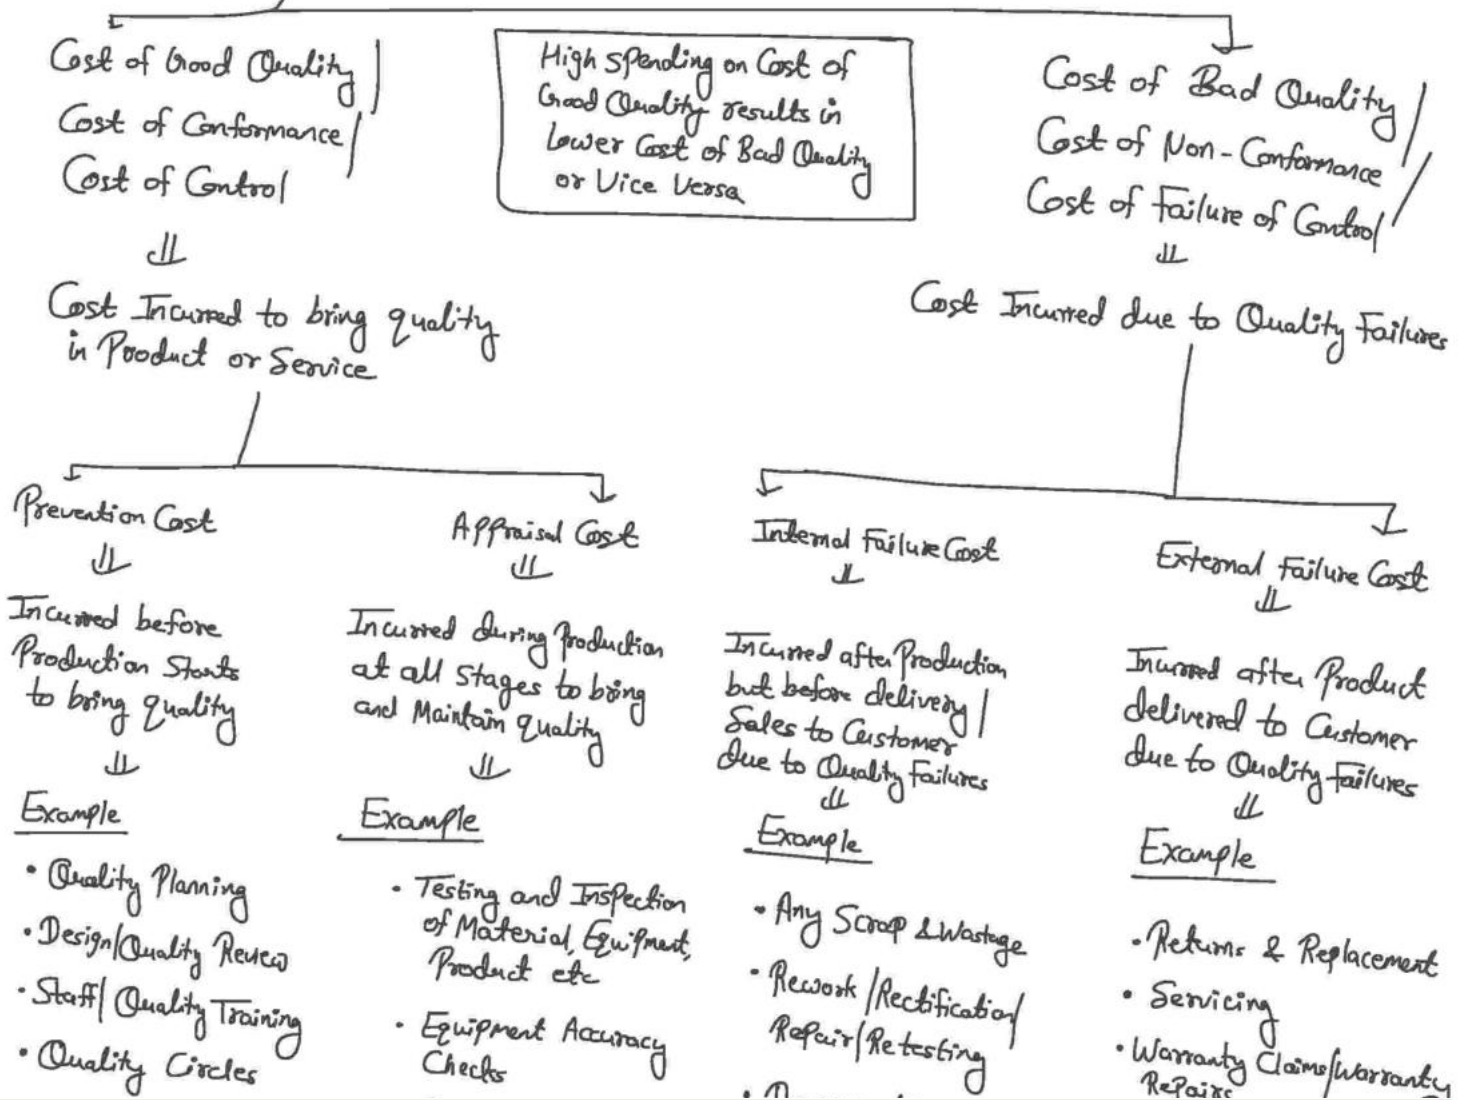 Cost of Good Quality/
Cost of Conformance/
Cost of Control
High spending on Cost of
Good Quality results in
Lower Cost of Bad Quality
or Vice Versa
Cost of Bad Quality/
Cost of Non-Conformance/
Cost of Failure of Control
Cost Incurred to bring quality
in Product or Service
Cost Incurred due to Quality Failures
Prevention Cost
Incurred before
Production Starts
to bring quality
Example
• Quality Planning
• Design/Quality Review
• Staff/Quality Training
• Quality Circles
Appraisal Cost
Incurred during Production
at all Stages to bring
and Maintain quality
Example
• Testing and Inspection
of Material, Equipment,
Product etc
• Equipment Accuracy
Checks
Internal Failure Cost
Incurred after Production
but before delivery/
Sales to Customer
due to Quality Failures
Example
• Any Scrap & Wastage
• Rework/Rectification/
Repair/Retesting
External Failure Cost
Incurred after Product
delivered to Customer
due to Quality Failures
Example
• Returns & Replacement
• Servicing
• Warranty Claims/Warranty
Repairs